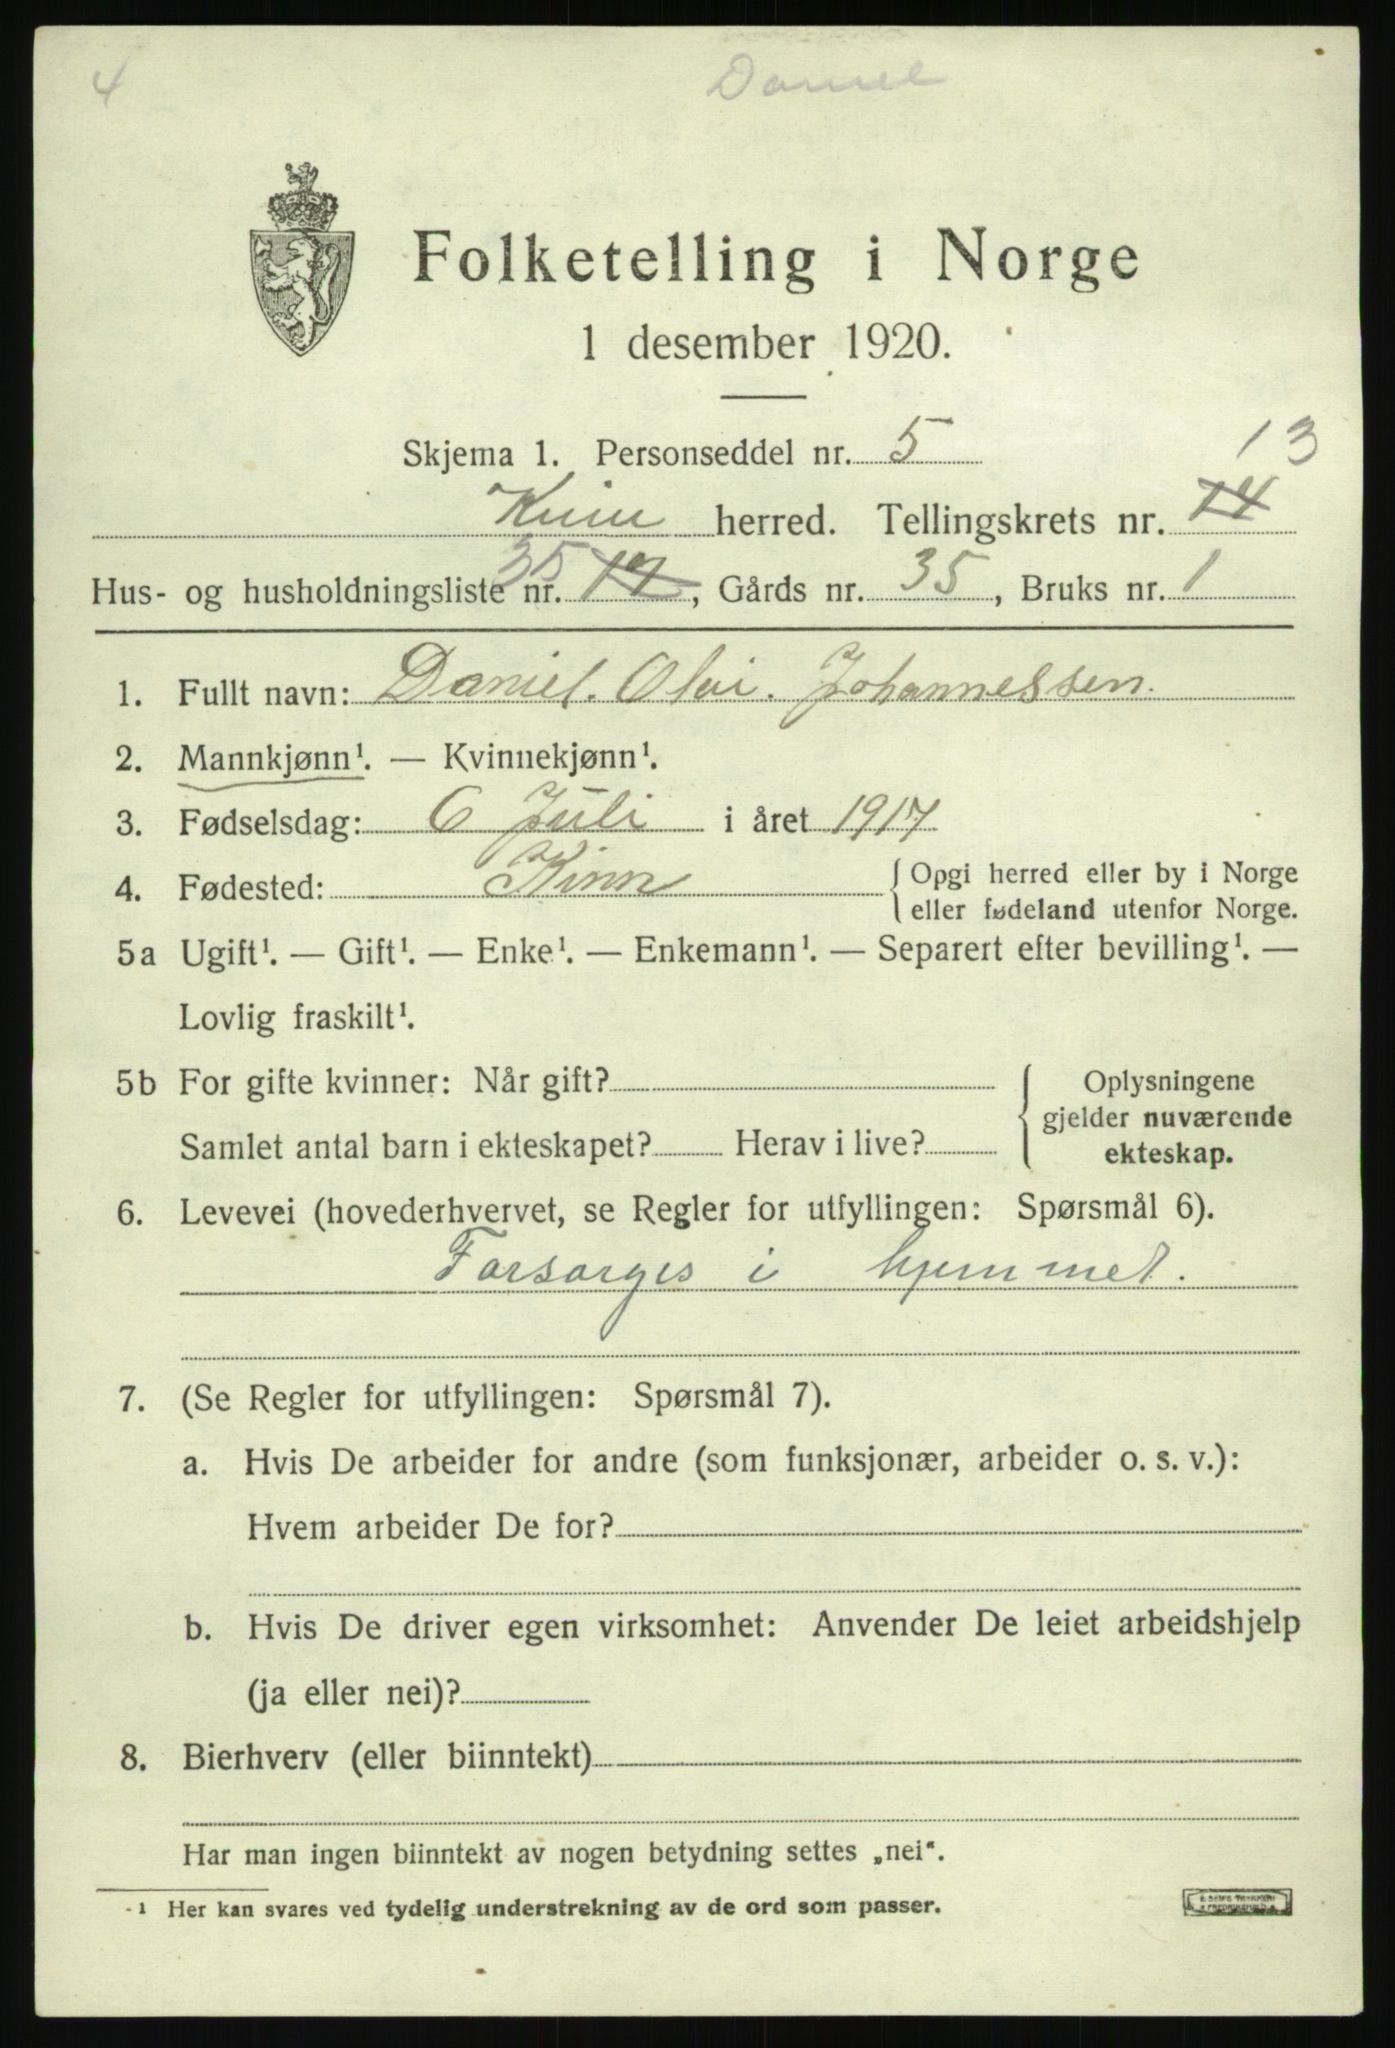 4
Daniel
Folketelling i Norge
1 desember 1920.
Skjema 1. Personseddel nr. 5
13
Kinn herred. Tellingskrets nr. 14
Hus- og husholdningsliste nr. 35 17, Gårds nr. 35, Bruks nr. 1
1. Fullt navn: Daniel. Olai. Johannessen.
2. Mannkjønn¹. — Kvinnekjønn¹.
3. Fødselsdag: 6 Juli i året 1917
4. Fødested: Kinn { Opgi herred eller by i Norge
eller fødeland utenfor Norge.
5a Ugift¹. — Gift¹. — Enke¹. — Enkemann¹. — Separert efter bevilling¹. —
Lovlig fraskilt¹.
5b For gifte kvinner: Når gift?
Samlet antal barn i ekteskapet? Herav i live?
{ Oplysningene
gjelder nuværende
ekteskap.
6. Levevei (hovederhvervet, se Regler for utfyllingen: Spørsmål 6).
Forsørges i hjemmet.
7. (Se Regler for utfyllingen: Spørsmål 7).
a. Hvis De arbeider for andre (som funksjonær, arbeider o. s. v.):
Hvem arbeider De for?
b. Hvis De driver egen virksomhet: Anvender De leiet arbeidshjelp
(ja eller nei)?
8. Bierhverv (eller biinntekt)
Har man ingen biinntekt av nogen betydning settes „nei“.
¹ Her kan svares ved tydelig understrekning av de ord som passer.